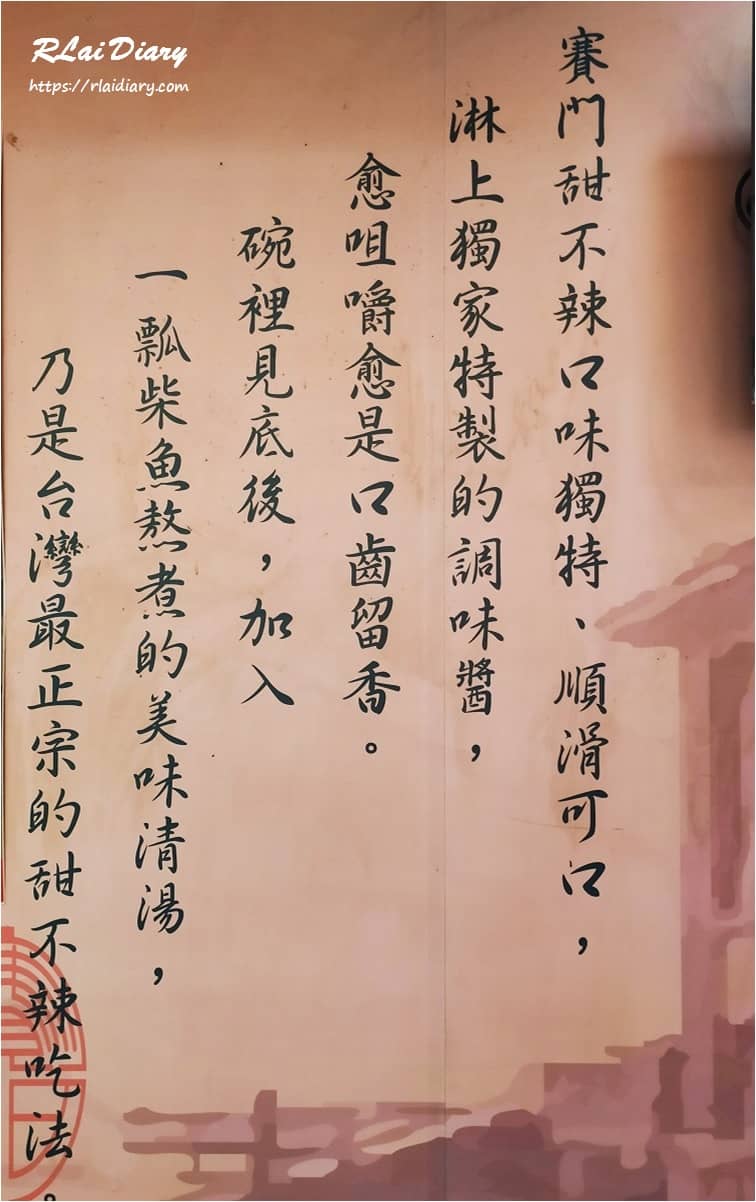 RLai Diary
https://rlaidiary.com
賽門甜不辣口味獨特、順滑可口，
淋上獨家特製的調味醬，
愈咀嚼愈是口齒留香。
碗裡見底後，加入
一瓢柴魚熬煮的美味清湯，
乃是台灣最正宗的甜不辣吃法。